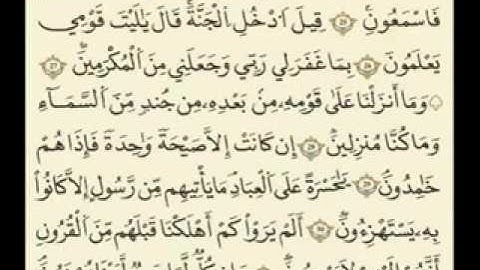 فَاسْمَعُونِ ﴿٢٥﴾ قِيلَ ادْخُلِ الْجَنَّةَ قَالَ يَا لَيْتَ قَوْمِي
يَعْلَمُونَ ﴿٢٦﴾ بِمَا غَفَرَ لِي رَبِّي وَجَعَلَنِي مِنَ الْمُكْرَمِينَ ﴿٢٧﴾
۞ وَمَا أَنزَلْنَا عَلَىٰ قَوْمِهِ مِن بَعْدِهِ مِن جُندٍ مِّنَ السَّمَاءِ
وَمَا كُنَّا مُنزِلِينَ ﴿٢٨﴾ إِن كَانَتْ إِلَّا صَيْحَةً وَاحِدَةً فَإِذَا هُمْ
خَامِدُونَ ﴿٢٩﴾ يَا حَسْرَةً عَلَى الْعِبَادِ مَا يَأْتِيهِم مِّن رَّسُولٍ إِلَّا كَانُوا
بِهِ يَسْتَهْزِءُونَ ﴿٣٠﴾ أَلَمْ يَرَوْا كَمْ أَهْلَكْنَا قَبْلَهُم مِّنَ الْقُرُونِ